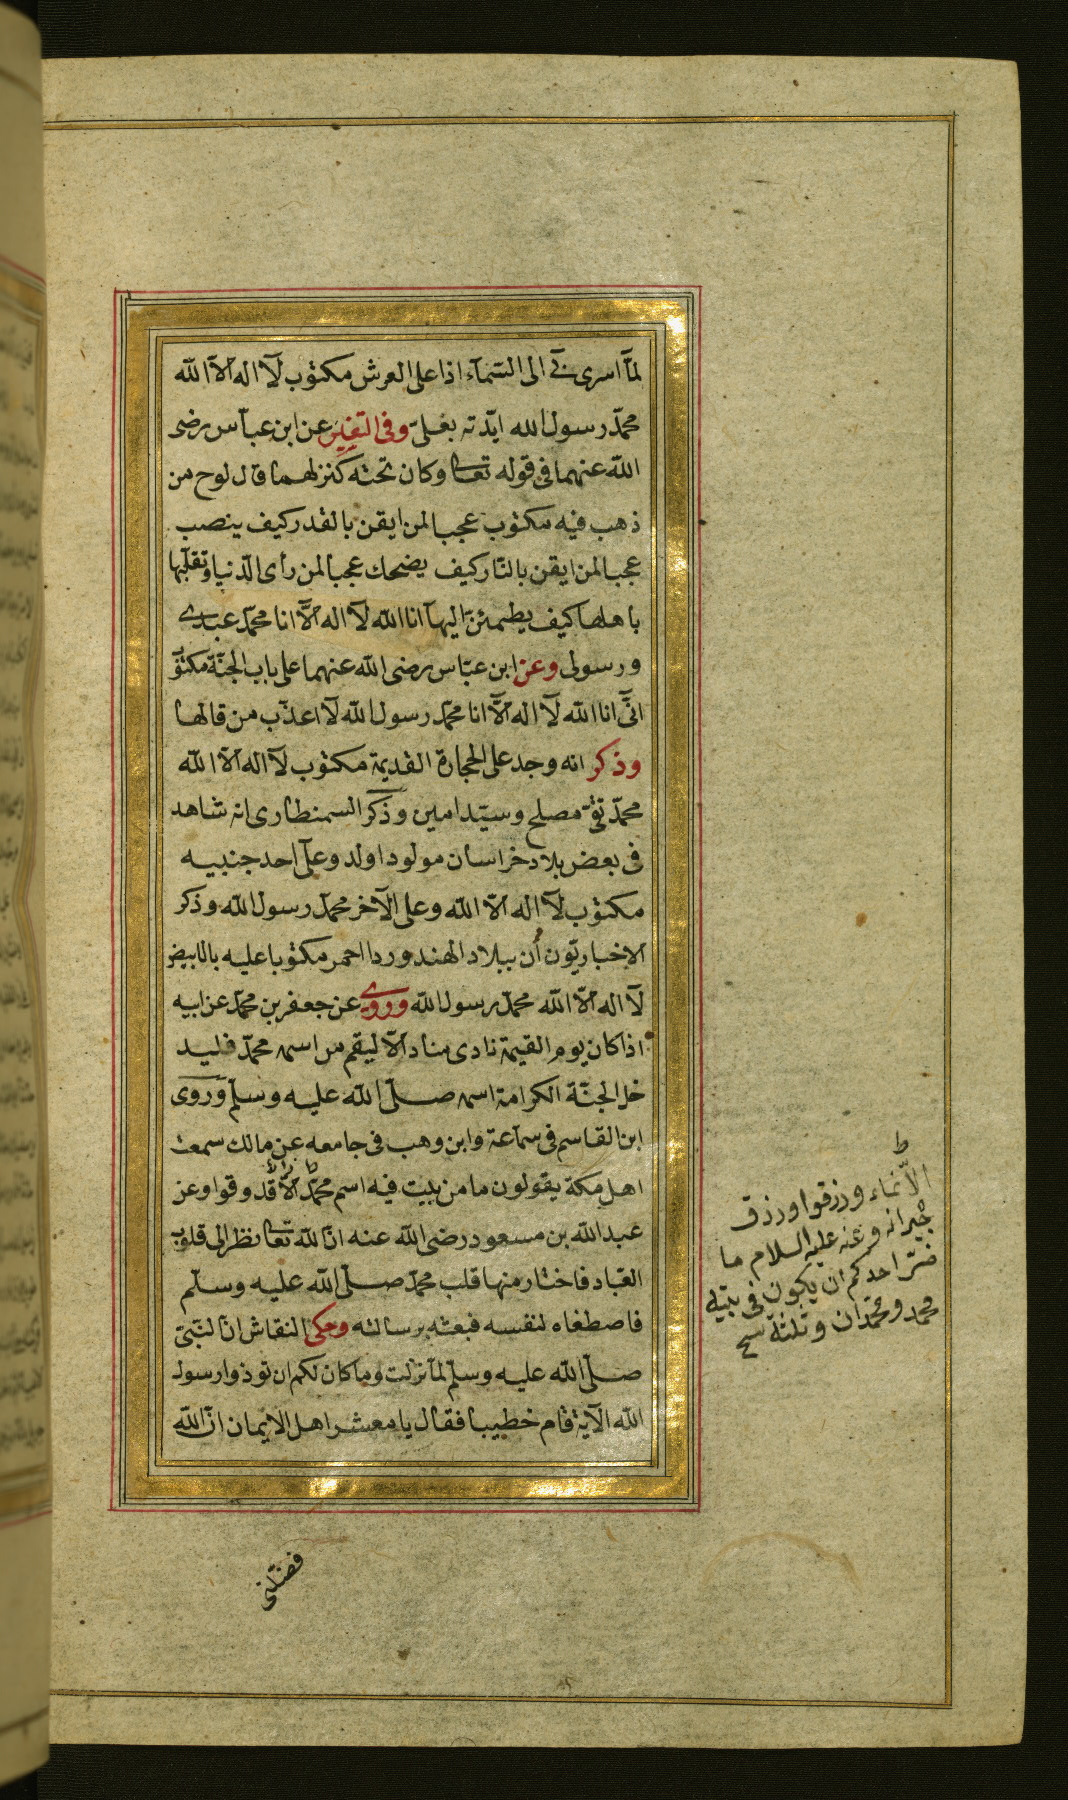 لمّا اسرى بى الى السّماء اذا على العرش مكتوب لآ اله الّا الله
محمّد رسول الله ايّدته بعلىّ وفى التفسير عن ابن عبّاس رضى
الله عنهما فى قوله تعا وكان تحته كنز لهما قال لوح من
ذهب فيه مكتوب عجبا لمن ايقن بالقدر كيف ينصب
عجبا لمن ايقن بالنّار كيف يضحك عجبا لمن رأى الدّنيا وتقلّبها
باهلها كيف يطمئنّ اليها انا الله لآ اله الّا انا محمّد عبدى
ورسولى وعن ابن عبّاس رضى الله عنهما على باب الجنّة مكتوب
انّى انا الله لآ اله الّا انا محمّد رسول الله لآ اعذّب من قالها
وذكر انه وجد على الحجارة القديمة مكتوب لآ اله الّا الله
محمّد تقىّ مصلح وسيّد امين وذكر السمنطارى انه شاهد
فى بعض بلاد خراسان مولودا ولد وعلى احد جنبيه
مكتوب لآ اله الّا الله وعلى الآخر محمّد رسول الله وذكر
الاخباريّون أن ببلاد الهند وردا احمر مكتوبا عليه بالابيض
لآ اله الّا الله محمّد رسول الله وروى عن جعفر بن محمّد عن ابيه
اذا كان يوم القيمة نادى مناد الّا ليقم من اسمه محمّد فليد
خل الجنّة الكرامة اسمه صلّى الله عليه وسلّم وروى
ابن القاسم فى سماعه وابن وهب فى جامعه عن مالك سمعت
اهل مكة يقولون ما من بيت فيه اسم محمّد الّا قد وقوا وعن
عبد الله بن مسعود رضى الله عنه انّ الله تعا نظر الى قلوب
العباد فاختار منها قلب محمّد صلّى الله عليه وسلّم
فاصطفاه لنفسه فبعثه برسالته وحكى النقاش انّ النّبىّ
صلّى الله عليه وسلّم لمّا نزلت وما كان لكم ان توذوا رسول
الله الآية قام خطيبا فقال يا معشر اهل الايمان انّ الله
ط
الّا نماء ورزقوا ورزق
جيرانه وعنه عليه السلام ما
ضرّ احدكم ان يكون فى بيته
محمد ومحمّدان وثلثة صح
فضّلنى